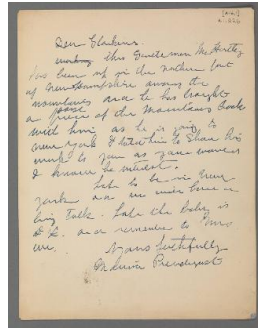 Dear Glackens
this Gentleman Mr Hartley
has been up in the northern part
of New Hampshire among the
mountains and he has brought
a piece of the mountains back
with him, as he is going to
new york I told him to show his
work to you as you would
I know be interested.
to be in new
york and we will have a
big talk. hope the baby is
O.K. and remember to Mrs
Yours faithfully
Maurice Prendergast